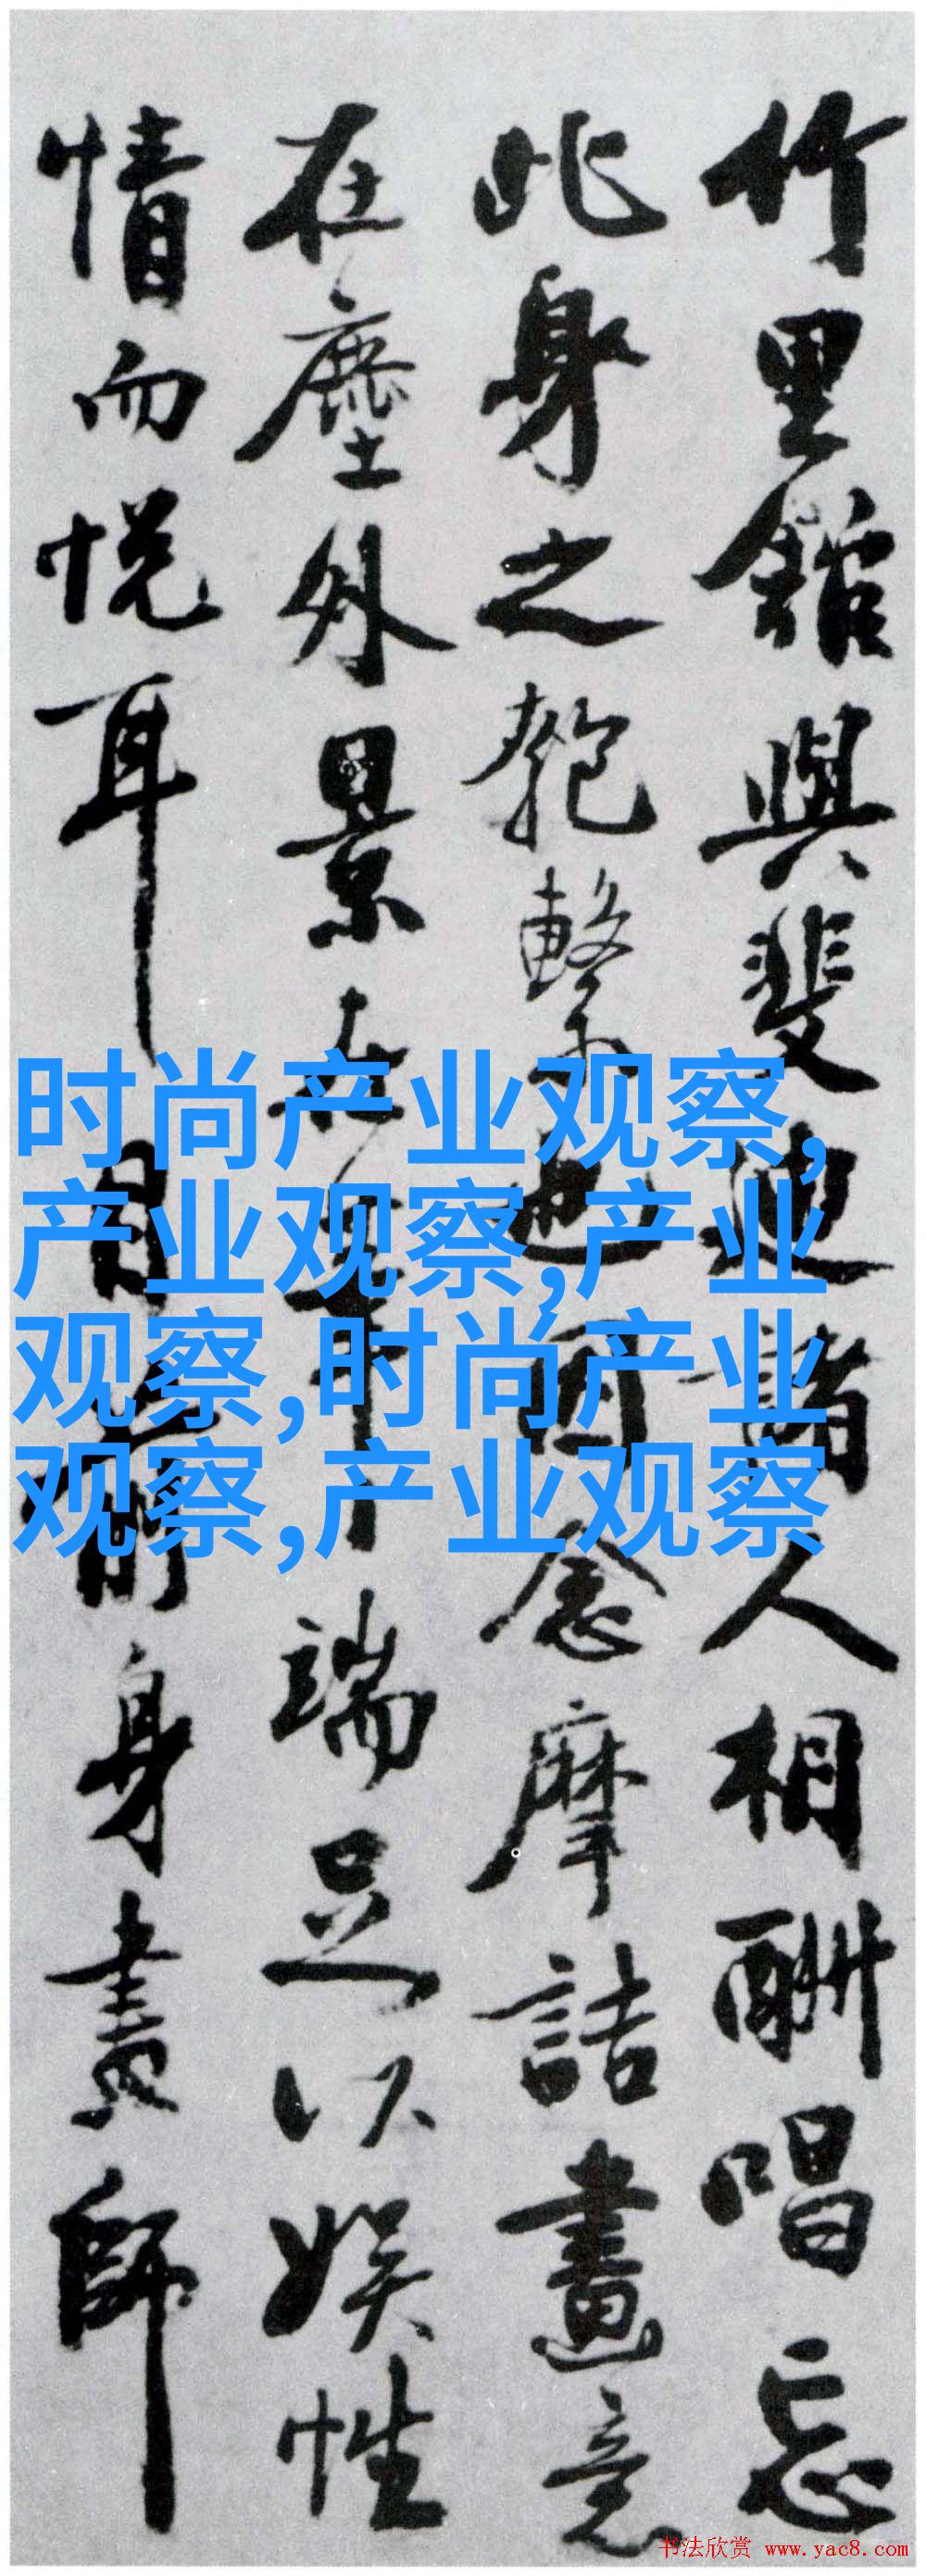 竹里舘與斐迪諸人相酬唱忘
此身之匏繫也因念摩詰畫意
在塵外景在筆端足以娛性
情而悅耳目前身畫師
时尚产业观察,
产业观察,产业
观察,时尚产业
观察,产业观察
书法欣赏 www.yac8.com